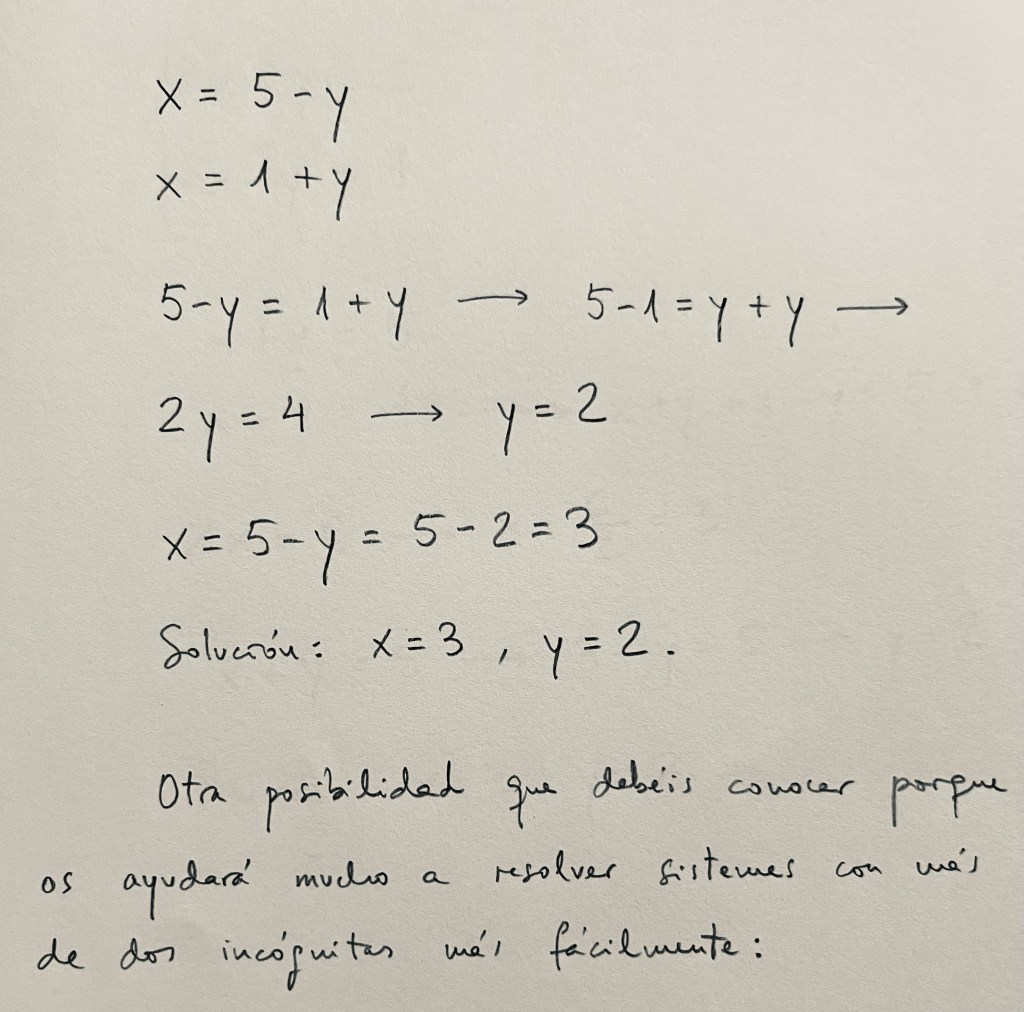 x = 5 - y
x = 1 + y
5 - y = 1 + y → 5 - 1 = y + y →
2y = 4 → y = 2
x = 5 - y = 5 - 2 = 3
Solución: x = 3 , y = 2.
Otra posibilidad que debéis conocer porque
os ayudará mucho a resolver sistemas con más
de dos incógnitas más fácilmente: